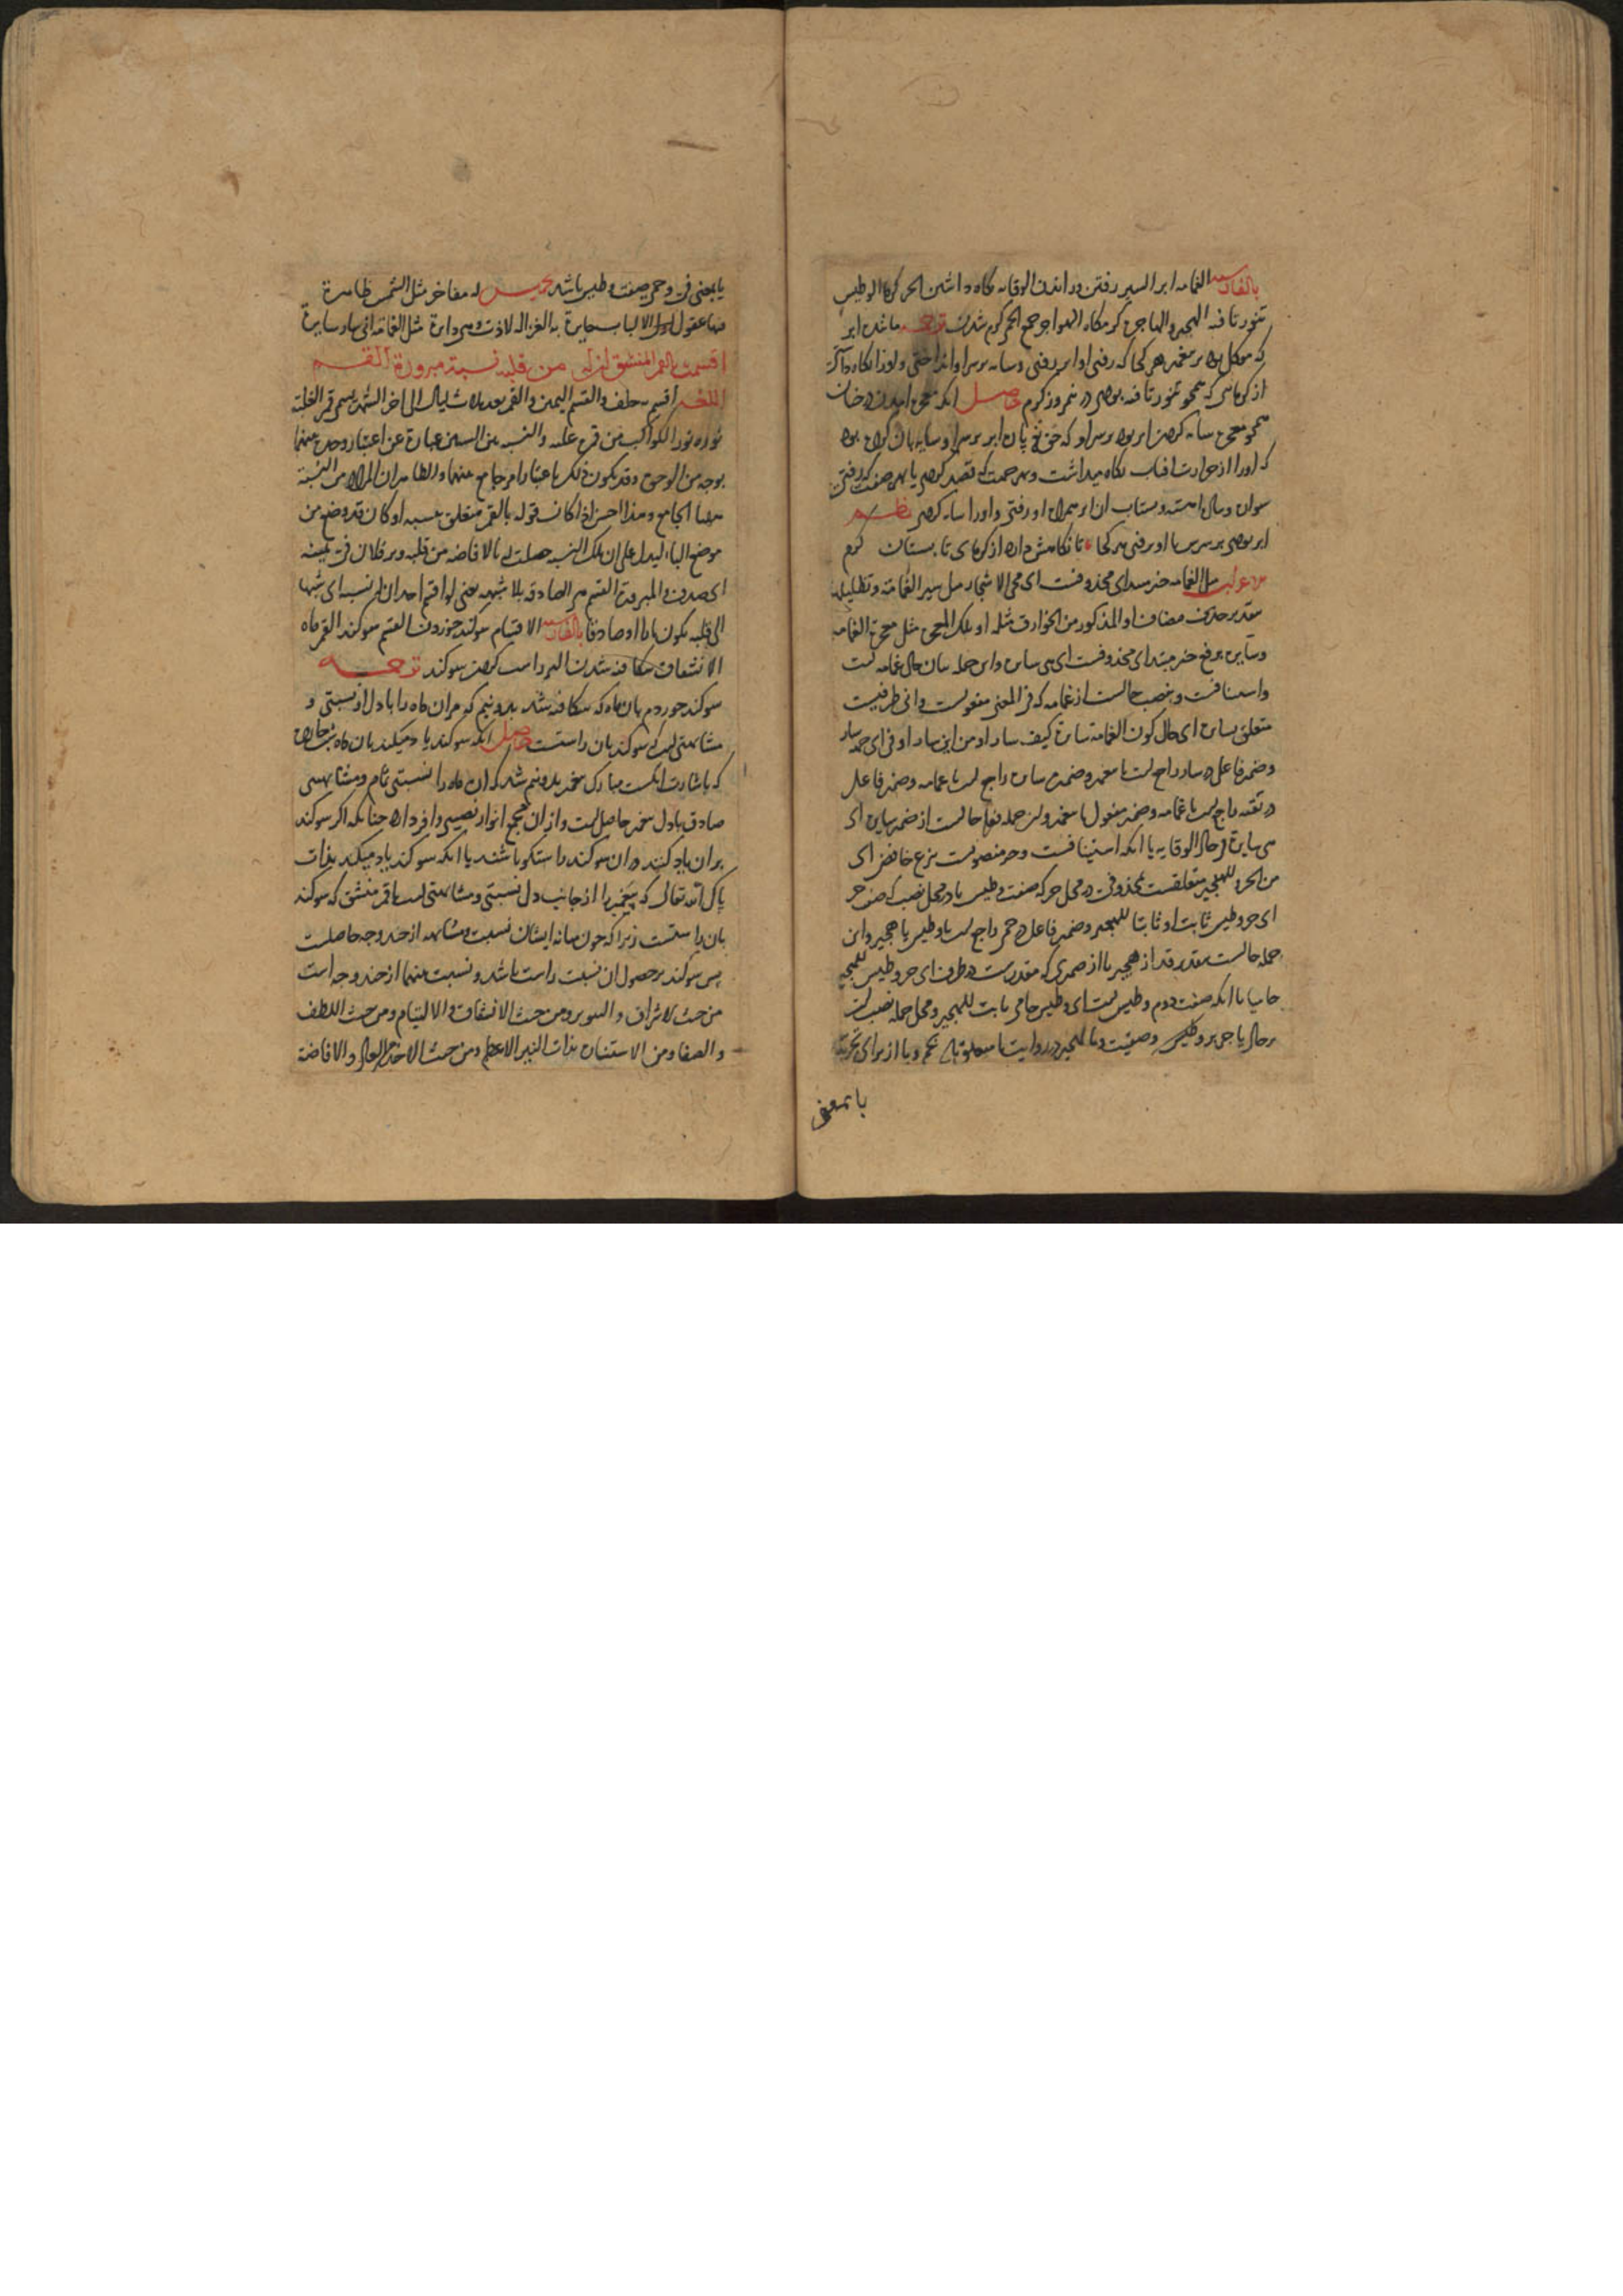 بالفارسیه الغمامه ابر السیر رفتن و راندن الوقایه نگاه داشتن الحر گرما الوطیس
تنور تافته الهجیر و الهاجره گرمگاه الهواجر جمع الحمی گرم شدن ترجمه مانند ابر
که موکل بود بر پیغمبر هر کجا که رفتی او ابر رفتی و سایه بر سر او انداختی و او را نگاه داشتی
از گرمای که همچو تنور تافته بودی در نیمروز گرم حاصل آنکه معجزه آمدن درختان
همچو معجزه سایه کردن ابر بود بر سر او که حق تعالی ابر بر سر او سایه‌بان کرده بود
که او را از حرارت آفتاب نگاه میداشت و بهر جهت که قصد کردی یا بهر صفت که رفتی
سوار و پیاده آهسته و بشتاب آن ابر همراه او رفتی و او را سایه کردی نظم
ابر بودی بر سرش با او برفتی هر کجا تا نگاهش دارد از گرمای تابستان گرم
مثل الغمامه خبر مبتدای محذوفست ای مجی الاشجار مثل سیر الغمامة و تظلیلها
بتقدیر حذف مضاف او المذکور من الخوارق مثله او تلک المعجزة مثل معجزة الغمامه
و سایرة برفع خبر مبتدای محذوفست ای هی سایرة و این جمله بیان حال غمامه است
و استینافست و بنصب حالست از غمامه که فی المعنی مفعولست و انی ظرفیست
متعلق بسایرة ای حال کون الغمامة سایرة کیف سار او من این سار او فی ای جهة سار
و ضمیر فاعل در سار راجع است با پیغمبر و ضمیر سایرة راجع است با غمامه و ضمیر فاعل
در تقیه راجع است با غمامه و ضمیر مفعول با پیغمبر و این جمله فعلیه حالست از ضمیر سایرة ای
هی سایرة فی حال الوقایه یا آنکه استینافست و حر منصوبست بنزع خافض ای
من الحر و للهجیر متعلقست بمحذوفی در محل جر که صفت وطیس یا در محل نصب که صفت حر
ای حر وطیس ثابت او ثابتا للهجیر و ضمیر فاعل در حمی راجع است با وطیس یا هجیر و این
جمله حالست بتقدیر قد از هجیر یا از ضمیری که مقدرست در ظرف ای حر وطیس للهجیر
حامیا یا آنکه صفت دوم وطیس است ای وطیس حامی ثابت للهجیر و محل جمله نصب است
بر حال یا جر بر وطیس و صفیت و بالهجیر در روایت با متعلق باشد بحمی و با از برای تجرید
یا بمعنی
یا بمعنی فی و حمی صفت وطیس باشد تخمیس له مفاخر مثل الشمس ظاهرة
فیها عقول اولی الالباب حایرة به الغزالة لاذت و هی دایرة مثل الغمامة انی سار سایرة
اقسمت بالقمر المنشق ان له من قلبه نسبة مبرورة القسم
اللغه اقسم به حلف و القسم الیمین و القمر بعد ثلاث لیال الی اخر الشهر یسمی قمرا لغلبة
نوره نور الکواکب من قمره غلبه و النسبة بین الشیئین عبارة عن اعتبار وحدة بینهما
بوجه من الوجوه و قد یکون ذلک باعتبار امر جامع بینهما و الظاهر ان المراد من النسبة
ههنا الجامع و هذا احسن اذا کانت قوله بالقمر متعلق بنسبة او کان قد وضع من
موضع الباء لیدل علی ان تلک النسبة حصلت له بالافاضة من قلبه و بر فلان فی یمینه
ای صدق و المبرورة القسم هی الصادقة بلا شبهة یعنی لو اقسم احد ان له نسبة ای شبها
الی قلبه یکون بارا او صادقا بالفارسیه الاقسام سوگند خوردن القسم سوگند القمر ماه
الانشقاق شکافته شدن البر راست کردن سوگند ترجمه
سوگند خوردم بآن ماه که شکافته شد بدو نیم که مر آن ماه را با دل او نسبتی و
مشابهتی است که سوگند بآن راستست حاصل آنکه سوگند یاد میکند بآن ماه شب چهارده
که باشارت انگشت مبارک پیغمبر بدو نیم شد که آن ماه را نسبتی تام و مشابهتی
صادق با دل پیغمبر حاصل است و از آن مجمع انوار نصیبی وافر دارد چنانکه اگر سوگند
بر آن یاد کنند در آن سوگند راستگو باشند یا آنکه سوگند یاد میکند بذات
پاک الله تعالی که پیغمبر را از جانب دل نسبتی و مشابهتی است با قمر منشق که سوگند
بآن راستست زیرا که چون میانه ایشان نسبت و مشابهت از چند وجه حاصلست
پس سوگند بر حصول آن نسبت راست باشد و نسبت بینهما از چند وجه است
من حیث الاشراق و التنویر و من حیث الانشقاق و الالتیام و من حیث اللطف
و الصفا و من الاستنارة بذات النیر الاعظم و من حیث الاخذ من العالی و الافاضة